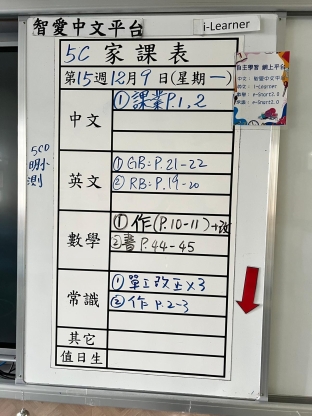 智愛中文平台
i-Learner
5C 家課表
第15週12月9日(星期一)
中文
①課業P.1,2
英文
①GB:P.21-22
②RB:P.19-20
數學
①作(P.10-11)+改
②書P.44-45
常識
①單工改正x3
②作 P.2-3
其它
值日生
自主學習 網上平台
中文：智愛中文平台
英文：i-Learner
數學：e-Smart2.0
常識：e-Smart2.0
5CD
明小
測